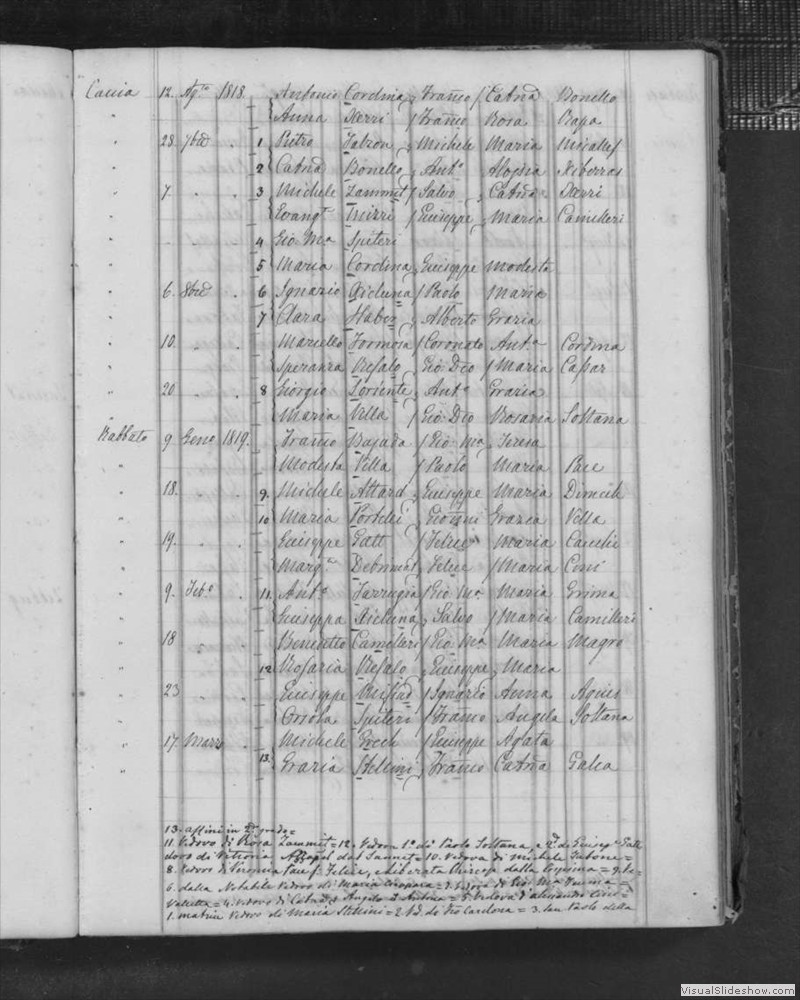 Caccia 12. Agto 1818. Antonio Cordina, Franco / Catna Bonello
" Anna Xerri / Franco Rosa Rapa
" 28. 7bre . 1 Pietro Fabron, Michele Maria Micallef
" 2 Catna Bonello, Anto Aloysia Xiberras
" 7. " . 3 Michele Zammit / Salvo, Catna Xerri
" Evangta Mizzi / Giuseppe, Maria Camilleri
" 4 Gio Ma Spiteri
" 5 Maria Cordina, Giuseppe Modesta
" 6. 8bre . 6 Ignazio Aicluna / Paolo Maria
" 7 Clara Haber, Alberto Grazia
" 10. " . Marcello Formosa / Coronato Anta Cordina
" Speranza Refalo / Gio Dio / Maria Caspar
" 20 " . 8 Giorgio Loriente, Anto Grazia
" Maria Vella / Gio Dio Rosaria Soltana
Rabbato 9 Geno 1819. Franco Bajada / Gio Ma Teresa
" Modesta Vella / Paolo Maria Pace
" 18. " . 9. Michele Attard, Giuseppe Maria Dimech
" 10 Maria Portelli / Giovni Grazia Vella
" 19. " . Giuseppe Gatt / Felice Maria Cauchi
" Margta Debrincat, Felice / Maria Cini
" 9. Febo . 11. Anto Farrugia / Gio Ma Maria Grima
" Giuseppa Aicluna, Salvo / Maria Camilleri
" 18 " . Benedetto Camilleri / Gio Ma Maria Magro
" 12 Rosaria Refalo, Giuseppe, Maria
" 23 " . Giuseppe Mifsud / Ignazio Anna Agius
" Orsola Spiteri / Franco Angela Soltana
" 17. Marzo . Michele Grech / Giuseppe Agata
" 13. Grazia Stellini, Franco Catna Galea
13. affini in 2do grado =
11. Vedovo di Rosa Zammit = 12. Vedova 1o di Paolo Soltana, e 2do di Giusepe Gatt
dovo di Vittoria dal Sannat = 10. Vedova di Michele Tabone =
8. Vedovo di Veronica Pace f. Felice, e liberata della = 9. Ve=
6. dalla Notabile Vedovo di Maria = 7. Vedova di Gio Ma =
Valletta = 4. Vedovo di Catna d'Angelo = 5. Vedova d'Alessandro Cini =
1. Vedovo di Maria Stellini = 2 Va di Dio Cardona = 3. San Paolo della
VisualSlideshow.com